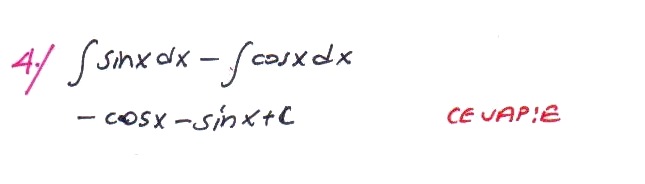 4·/ ∫ sinx dx − ∫ cosx dx
− cosx − sinx + C
CEVAP:E